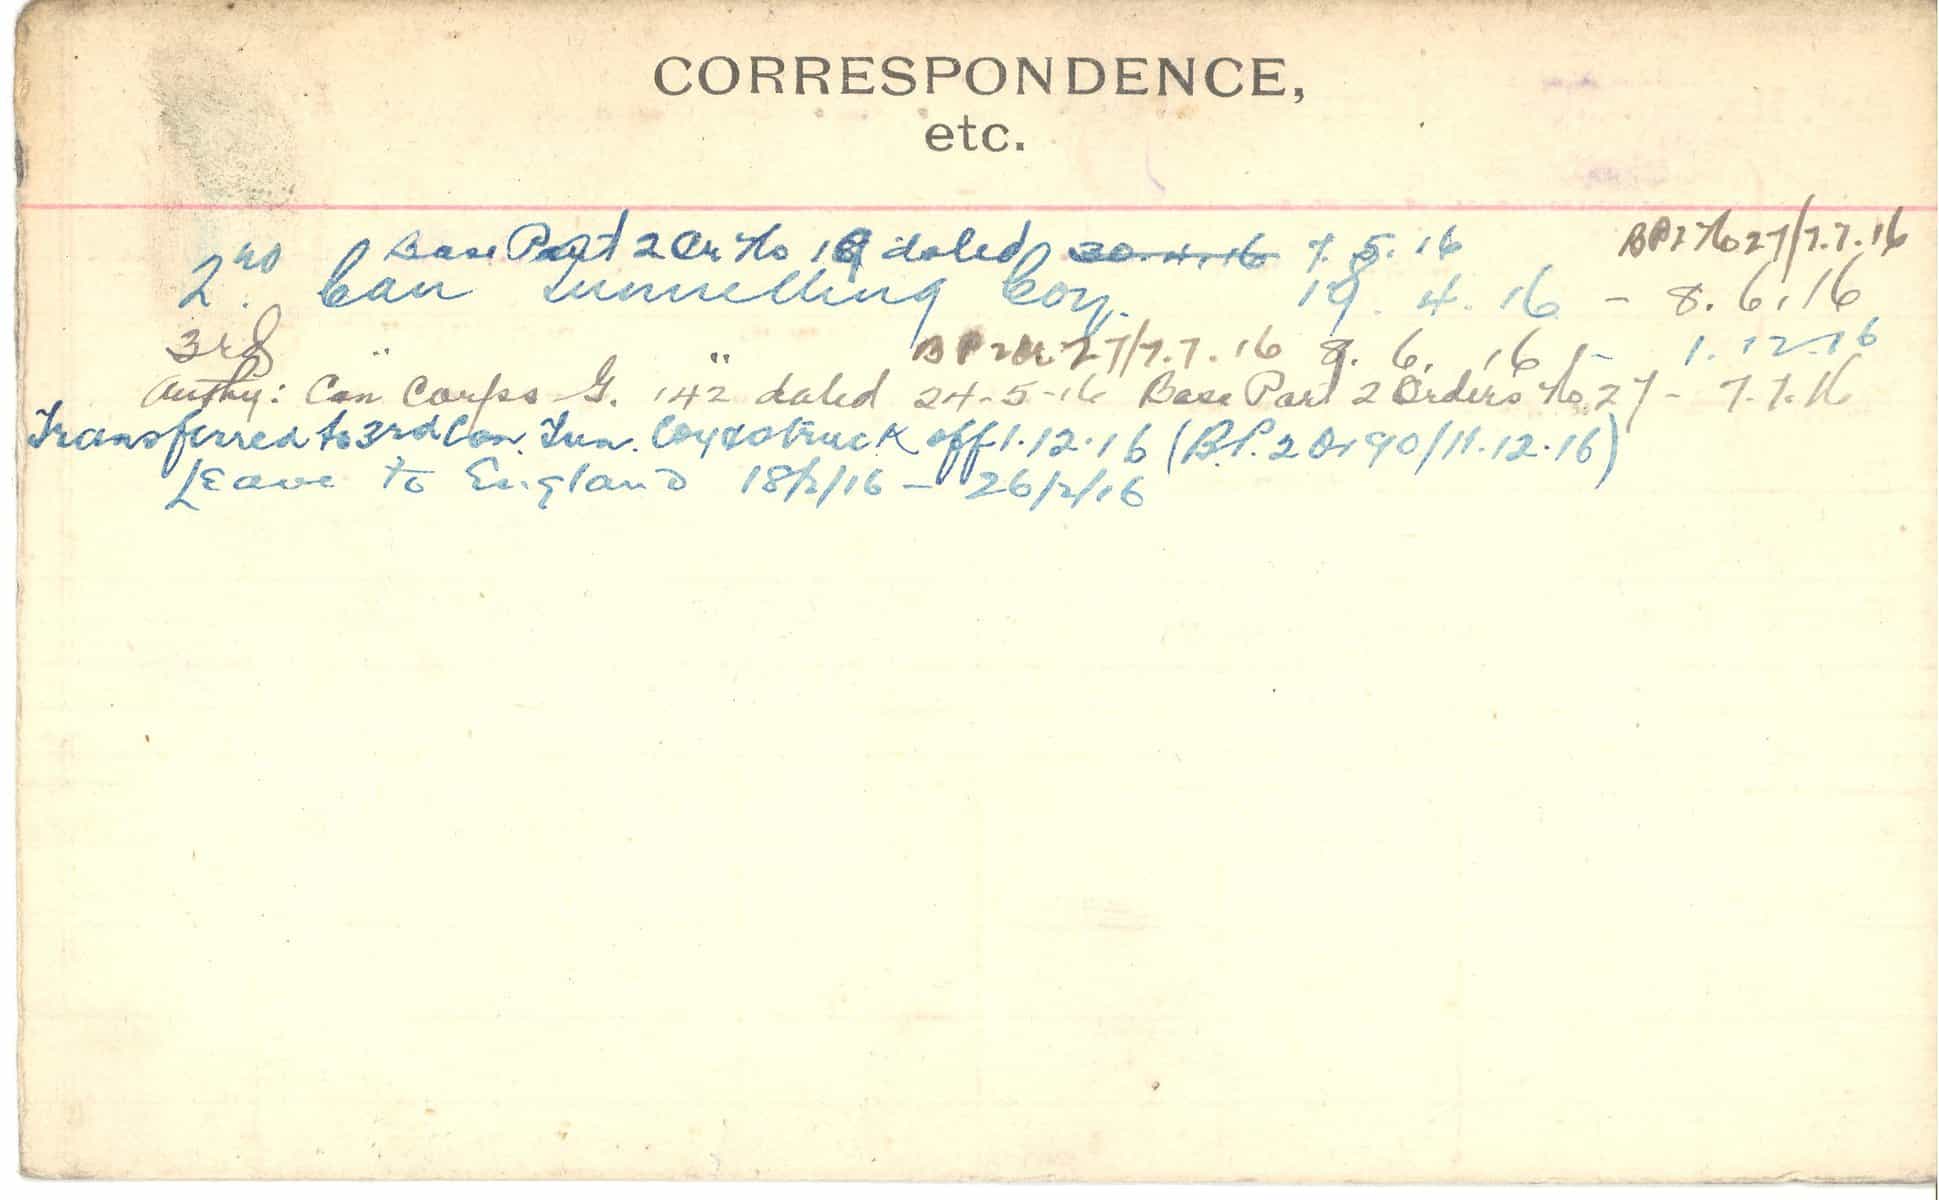 CORRESPONDENCE,
etc.
Base Part 2 Or No 19 dated 30.4.16 7.5.16 BP2 No 27/7.7.16
2nd. Can Tunnelling Coy. 19.4.16 - 8.6.16
3rd " " BP2 Or 27/7.7.16 8.6.16 - 1.12.16
Authy: Can Corps G. 142 dated 24-5-16 Base Part 2 Orders No 27 - 7.7.16
Transferred to 3rd Can. Tun. Coy & struck off 1.12.16 (B.P. 2 Or 90/11.12.16)
Leave to England 18/2/16 - 26/2/16